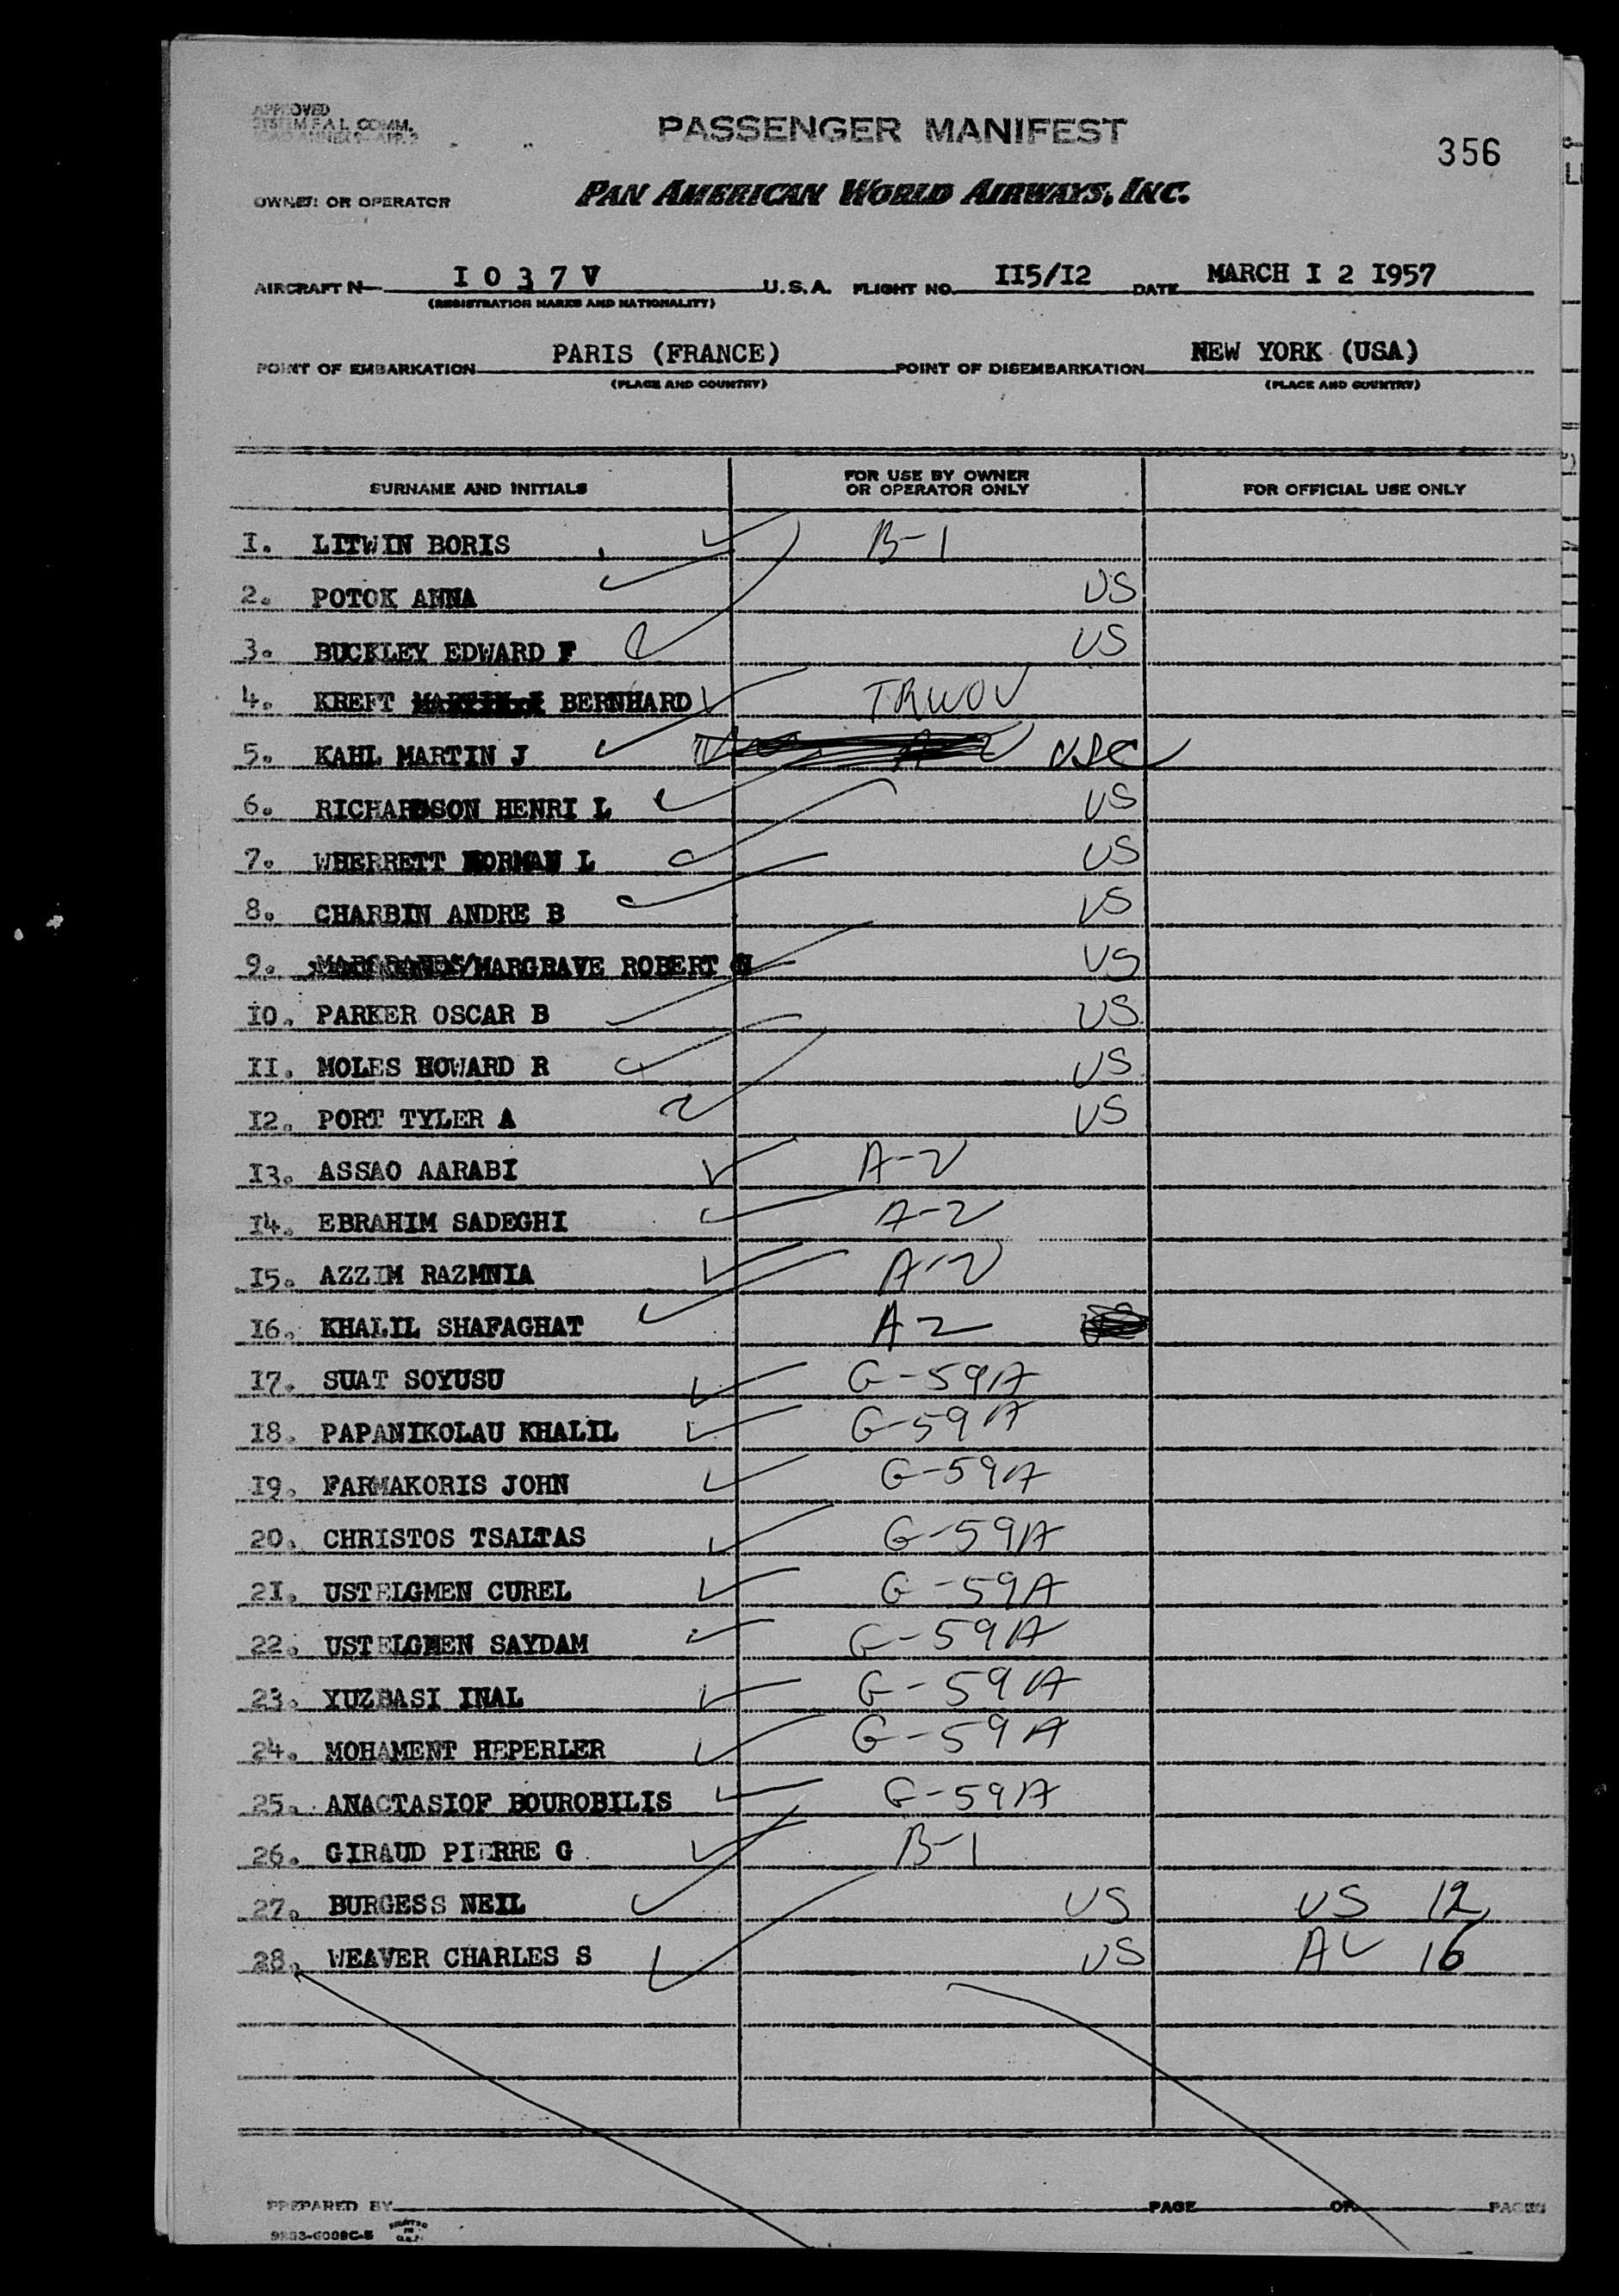 APPROVED
SYSTEM F.A.L. COMM.
PASSENGER MANIFEST
356
OWNER OR OPERATOR PAN AMERICAN WORLD AIRWAYS, INC.
AIRCRAFT N I 0 3 7 V U.S.A. FLIGHT NO. II5/I2 DATE MARCH I 2 I957
(REGISTRATION MARKS AND NATIONALITY)
POINT OF EMBARKATION PARIS (FRANCE) POINT OF DISEMBARKATION NEW YORK (USA)
(PLACE AND COUNTRY) (PLACE AND COUNTRY)
SURNAME AND INITIALS FOR USE BY OWNER OR OPERATOR ONLY FOR OFFICIAL USE ONLY
I. LITWIN BORIS B-1
2. POTOK ANNA US
3. BUCKLEY EDWARD F US
4. KREFT BERNHARD TRWOV
5. KAHL MARTIN J
6. RICHARDSON HENRI L US
7. WHERRETT NORMAN L US
8. CHARBIN ANDRE B US
9. MARGRAVE ROBERT N US
I0. PARKER OSCAR B US
II. MOLES HOWARD R US
I2. PORT TYLER A US
I3. ASSAO AARABI A-2
I4. EBRAHIM SADEGHI A-2
I5. AZZIM RAZMNIA A-2
I6. KHALIL SHAFAGHAT A2
I7. SUAT SOYUSU G-59A
I8. PAPANIKOLAU KHALIL G-59A
I9. FARMAKORIS JOHN G-59A
20. CHRISTOS TSALTAS G-59A
2I. USTELGMEN CUREL G-59A
22. USTELGMEN SAYDAM G-59A
23. YUZBASI INAL G-59A
24. MOHAMENT HEPERLER G-59A
25. ANACTASIOF BOUROBILIS G-59A
26. GIRAUD PIERRE G B-1
27. BURGESS NEIL US US 12
28. WEAVER CHARLES S US AL 16
PREPARED BY PAGE OF PAGES